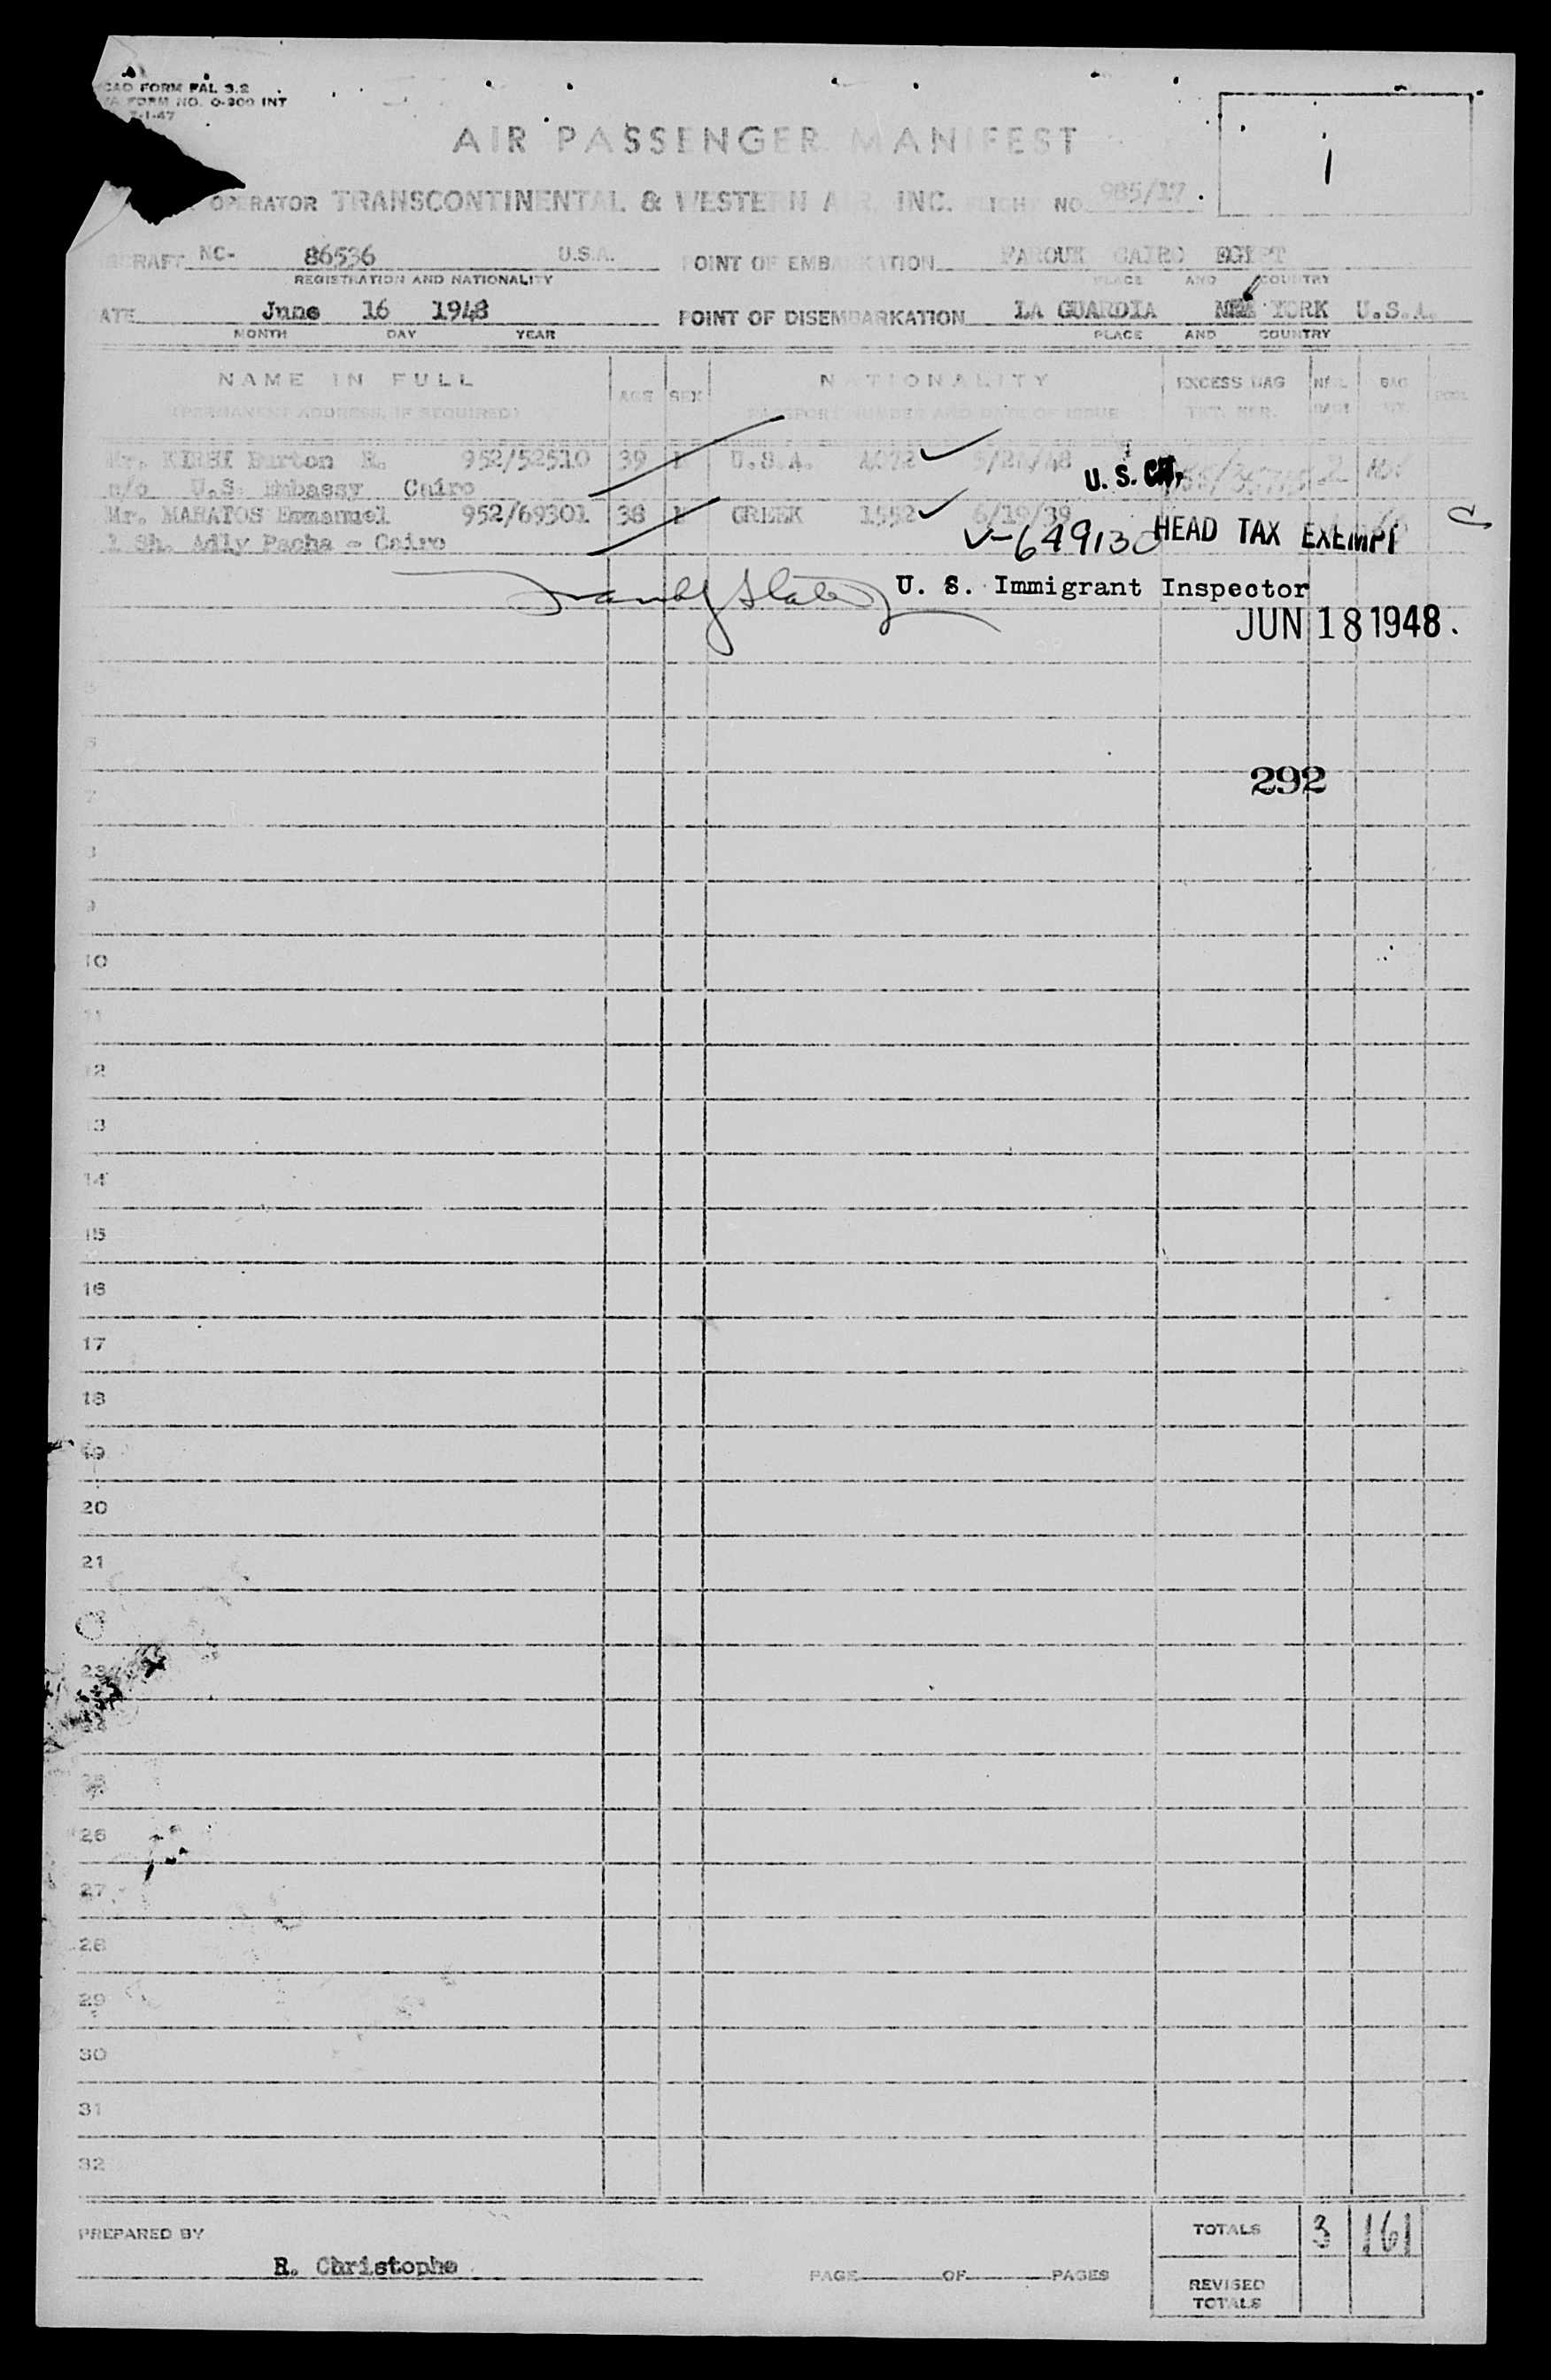 FORM FAL 3.2
FORM NO. 0-200 INT
7-1-47
1
AIR PASSENGER MANIFEST
OPERATOR TRANSCONTINENTAL & WESTERN AIR, INC. FLIGHT NO. 985/17
AIRCRAFT NC- 86536 U.S.A. POINT OF EMBARKATION FAROUK CAIRO EGYPT
REGISTRATION AND NATIONALITY PLACE AND COUNTRY
DATE June 16 1948 POINT OF DISEMBARKATION LA GUARDIA NEW YORK U.S.A.
MONTH DAY YEAR PLACE AND COUNTRY
NAME IN FULL AGE SEX NATIONALITY EXCESS BAG BAG
(PERMANENT ADDRESS, IF REQUIRED) PASSPORT NUMBER AND DATE OF ISSUE TKT. NBR.
Mr. Burton R. 952/52510 39 U.S.A. 4072 2
c/o U.S. Embassy Cairo U. S. CIT.
Mr. MARATOS Emmanuel 952/69301 38 GREEK 1552 6/19/39
1 Sh. Adly Pacha - Cairo V-649130 HEAD TAX EXEMPT
U. S. Immigrant Inspector
JUN 18 1948.
5
6
7
292
8
9
10
11
12
13
14
15
16
17
18
19
20
21
23
24
25
26
27
28
29
30
31
32
PREPARED BY TOTALS 3 161
R. Christophe PAGE OF PAGES
REVISED
TOTALS